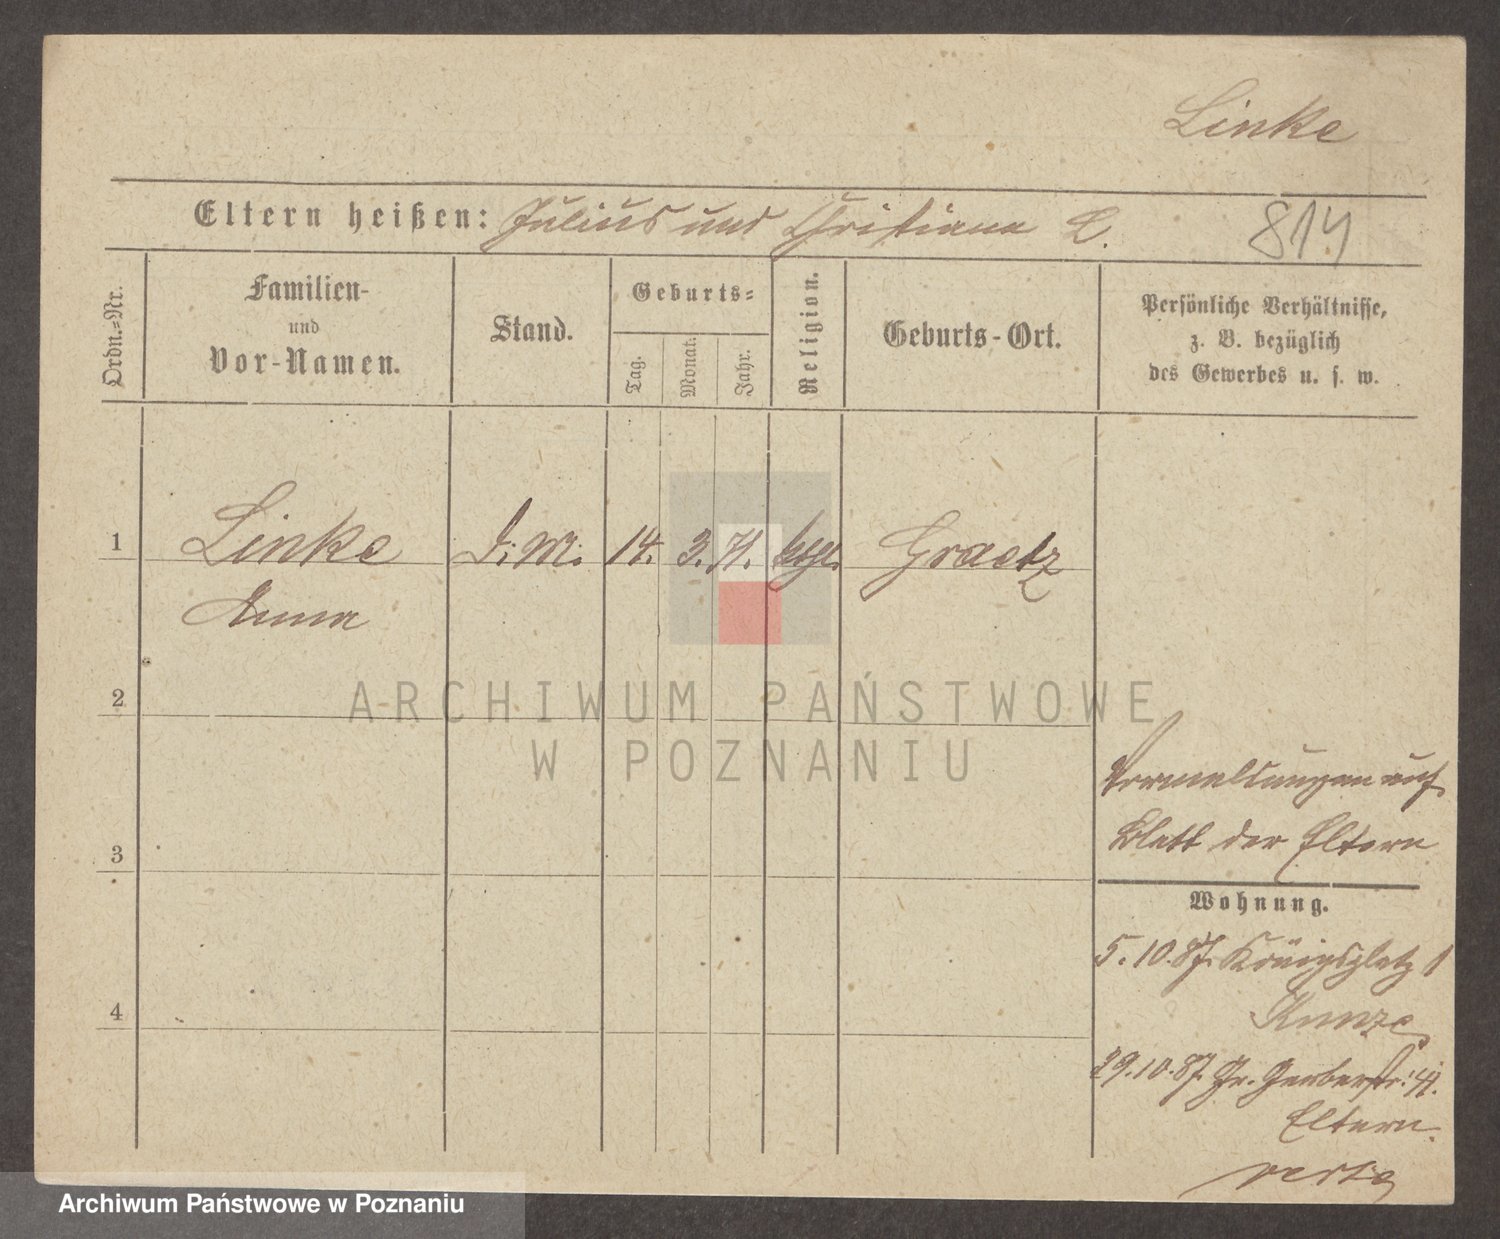 Linke
Eltern heißen: Julius und Christiana L.
814
Ordn.-Nr.
Familien-
und
Vor-Namen.
Stand.
Geburts-
Tag.
Monat.
Jahr.
Religion.
Geburts-Ort.
Persönliche Verhältnisse,
z. B. bezüglich
des Gewerbes u. s. w.
1
Linke D. M. 14. 3. 71. kath. Graetz
Anna
2
ARCHIWUM PAŃSTWOWE
W POZNANIU
Vormeldungen auf
Blatt der Eltern
3
Wohnung.
5.10.87. Königsplatz 1
Kunze
4
29.10.87. Gr. Gerberstr. 41.
Eltern.
verte
Archiwum Państwowe w Poznaniu